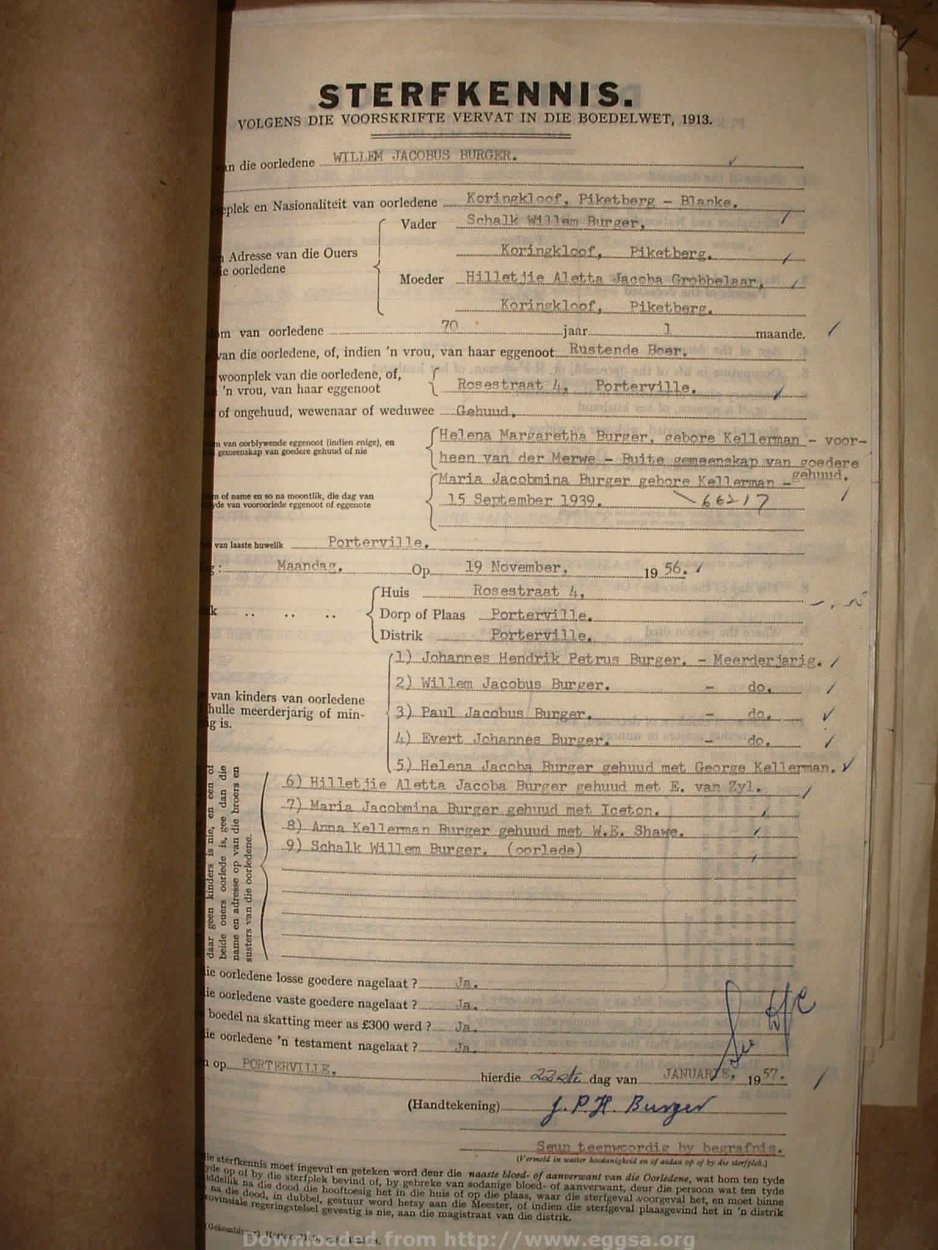 STERFKENNIS.
VOLGENS DIE VOORSKRIFTE VERVAT IN DIE BOEDELWET, 1913.
an die oorledene WILLEM JACOBUS BURGER.
eplek en Nasionaliteit van oorledene Koringkloof, Piketberg - Blanke.
Vader Schalk Willem Burger,
Adresse van die Ouers Koringkloof, Piketberg.
e oorledene
Moeder Hilletjie Aletta Jacoba Grobbelaar,
Koringkloof, Piketberg.
om van oorledene 70 jaar 1 maande.
van die oorledene, of, indien 'n vrou, van haar eggenoot Rustende Boer.
woonplek van die oorledene, of,
'n vrou, van haar eggenoot Rosestraat 4, Porterville.
of ongehuud, wewenaar of weduwee Gehuud.
m van oorblywende eggenoot (indien enige), en Helena Margaretha Burger, gebore Kellerman - voor-
gemeenskap van goedere gehuud of nie heen van der Merwe - Buite gemeenskap van goedere
gehuud.
Maria Jacobmina Burger gebore Kellerman -
m of name en so na moontlik, die dag van
yde van vooroorlede eggenoot of eggenote 15 September 1939. 66217
van laaste huwelik Porterville.
g: Maandag. Op 19 November, 1956.
Huis Rosestraat 4,
k .. .. .. Dorp of Plaas Porterville.
Distrik Porterville.
1) Johannes Hendrik Petrus Burger. - Meerderjarig.
van kinders van oorledene 2) Willem Jacobus Burger. - do.
hulle meerderjarig of min- 3) Paul Jacobus Burger. - do.
g is.
4) Evert Johannes Burger. - do.
5) Helena Jacoba Burger gehuud met George Kellerman.
6) Hilletjie Aletta Jacoba Burger gehuud met E. van Zyl.
7) Maria Jacobmina Burger gehuud met Iceton.
8) Anna Kellerman Burger gehuud met W.E. Shawe.
9) Schalk Willem Burger. (oorlede)
daar geen kinders is nie, en een of
beide ouers oorlede is, gee dan die
name en adresse op van die broers en
susters van die oorledene.
ie oorledene losse goedere nagelaat? Ja.
ie oorledene vaste goedere nagelaat? Ja.
boedel na skatting meer as £300 werd? Ja.
ie oorledene 'n testament nagelaat? Ja.
op PORTERVILLE. hierdie 22ste dag van JANUARIE, 1957.
(Handtekening) J. P. H. Burger
Seun teenwoordig by begrafnis.
(Vermeld in watter hoedanigheid en of aldan op of by die sterfplek.)
ie sterfkennis moet ingevul en geteken word deur die naaste bloed- of aanverwant van die Oorledene, wat hom ten tyde
yde op of by die sterfplek bevind of, by gebreke van sodanige bloed- of aanverwant, deur die persoon wat ten tyde
iddellik na die dood die hooftoesig het in die huis of op die plaas, waar die sterfgeval voorgeval het, en moet binne
na die dood, in dubbel, gestuur word hetsy aan die Meester, of indien die sterfgeval plaasgevind het in 'n distrik
rovinsiale regeringstelsel gevestig is nie, aan die magistraat van die distrik.
Downloaded from http://www.eggsa.org